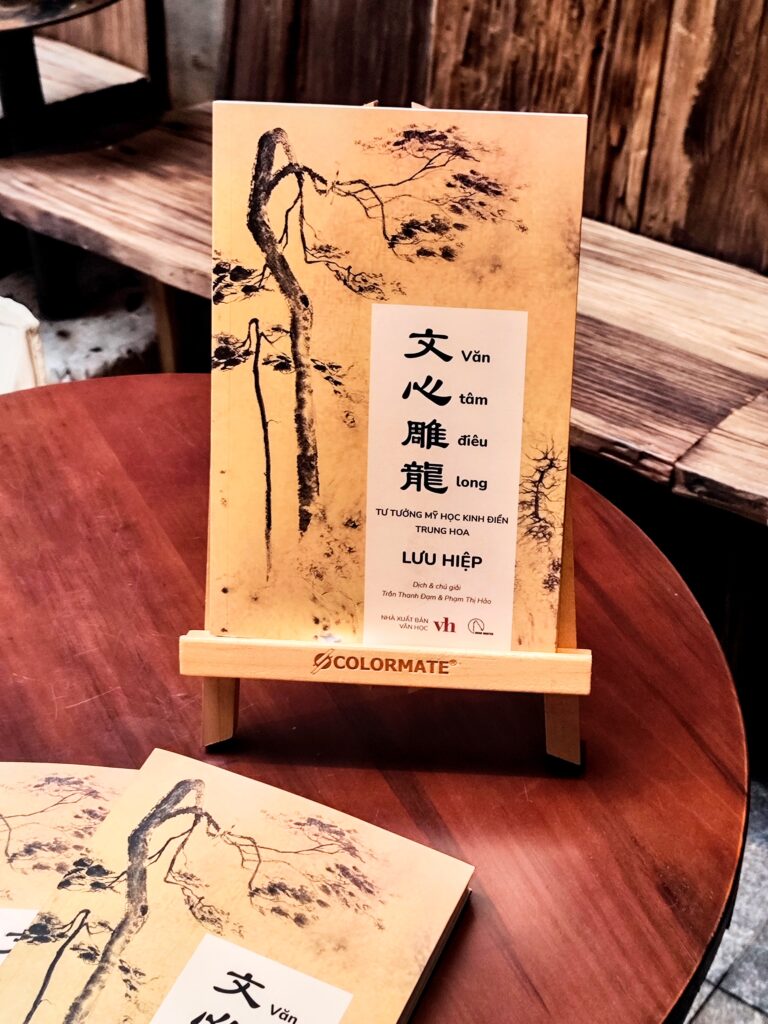 文 Văn
心 tâm
雕 điêu
龍 long
TƯ TƯỞNG MỸ HỌC KINH ĐIỂN
TRUNG HOA
LƯU HIỆP
Dịch & chú giải
Trần Thanh Đạm & Phạm Thị Hảo
NHÀ XUẤT BẢN
VĂN HỌC
vh
COLORMATE®
文 Văn